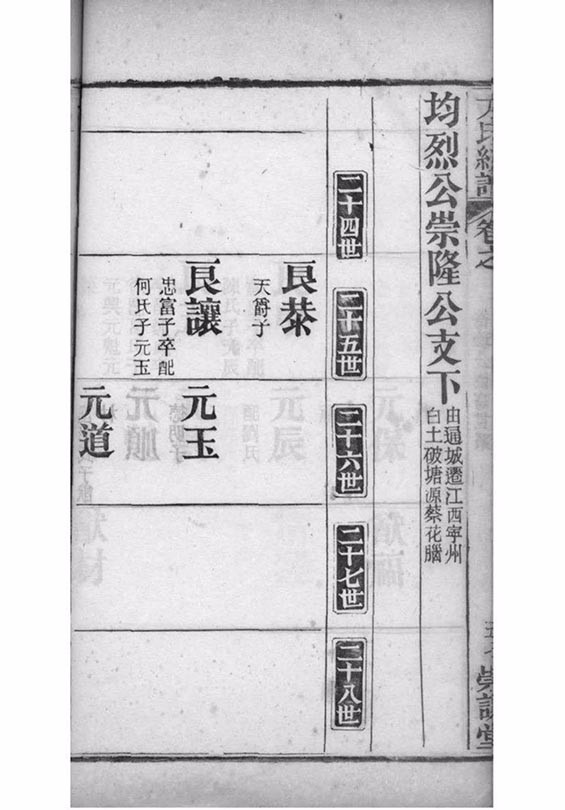 均烈公崇隆公支下
由通城遷江西寧州
白土破塘源蔡花腦
二十四世
二十五世
二十六世
二十七世
二十八世
良恭
天爵子
良讓
忠富子卒配
何氏子元玉
元玉
元道